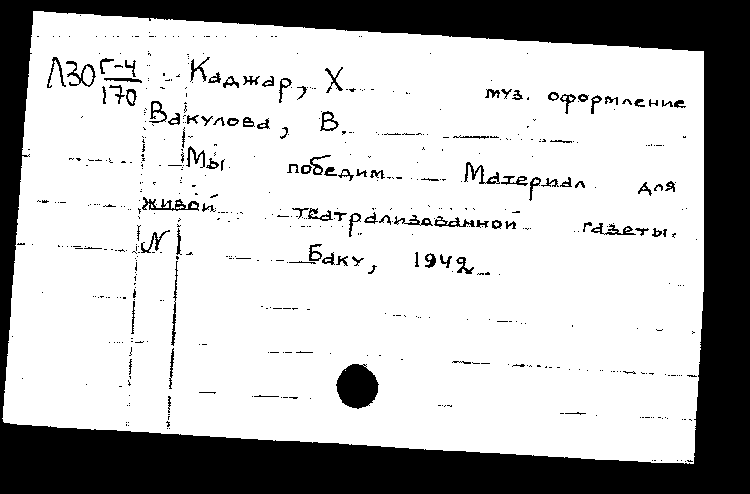 Л30 Г-4/170 Каджар, Х. муз. оформление
Вакулова, В.
Мы победим Материал для
живой театрализованной газеты.
N 1. Баку, 1942